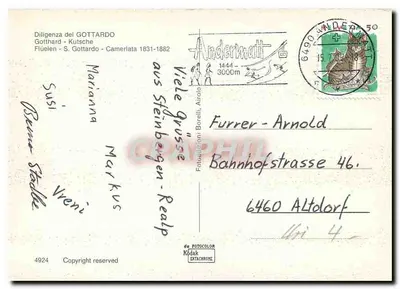 Diligenza del GOTTARDO
Gotthard - Kutsche
Flüelen - S. Gottardo - Camerlata 1831-1882
Andermatt
1444 -
3000m
6490 ANDERMATT
50
Viele Grüsse
aus Steinbergen-Realp
Markus
Marianna
Susi
Vreni
Furrer-Arnold
Bahnhofstrasse 46.
6460 Altdorf
Uri
4924 Copyright reserved
de FOTOCOLOR
Kodak
EKTACHROME